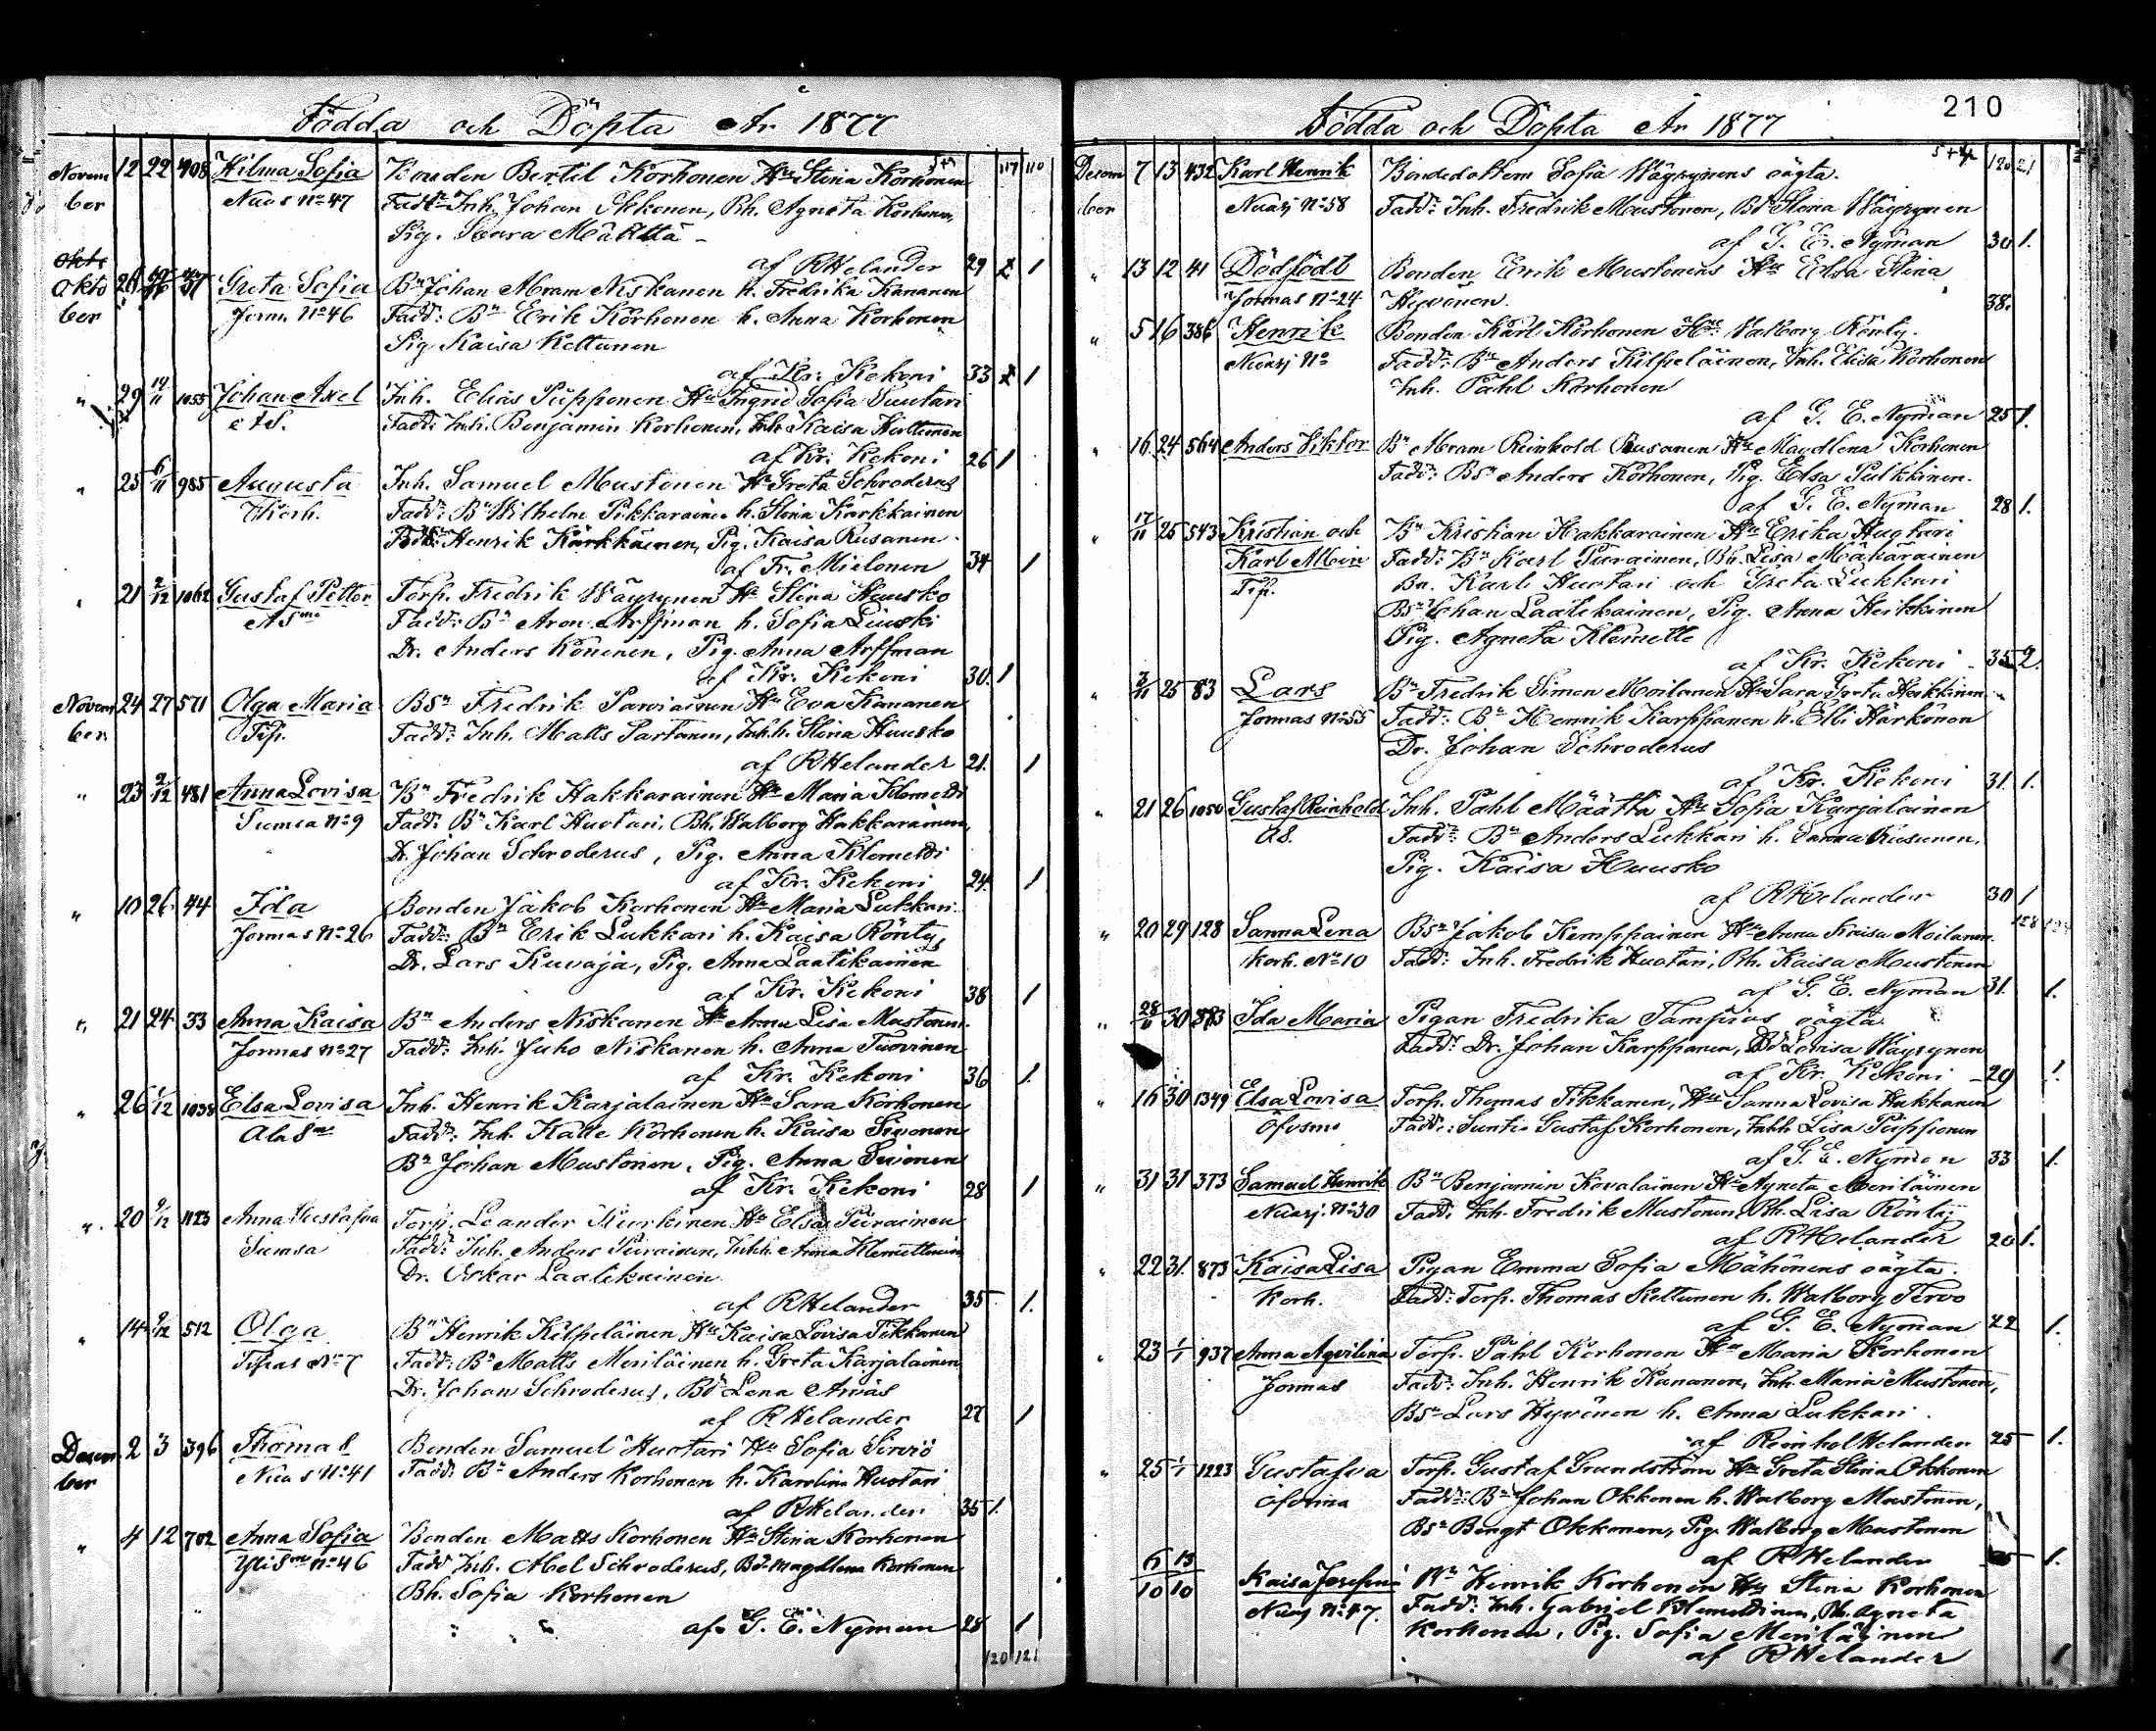 Födda och Döpta År 1877
Novem 12 22 408 Hilma Sofia Bonden Bertil Korhonen Hu Stina Korhonen 117 110
ber Nuas No 47 Fadd: Inh. Johan Okkonen, Bh. Agneta Korhonen,
Pig. Määttä
af RHelander 29 1
Okto 37 Greta Sofia Bn Johan Abram Niskanen h. Fredrika Kananen
ber Jorm. No 46 Fadd: Bn Erik Korhonen h. Anna Korhonen
Pig. Kaisa Keltunen
af Kr. Kekoni 33 1
" 29 1055 Johan Axel Inh. Elias Piipponen Hu Ingrid Sofia Suutari
Fadd: Inh. Benjamin Korhonen, Inh. Kaisa
af Kr. Kekoni 26 1
" 25 985 Augusta Inh. Samuel Mustonen Hu Greta Schroderus
Korh. Fadd: Bn Wilhelm Pikkarainen h. Stina Karkkainen
Henrik Kärkkäinen, Pig. Kaisa Rusanen
af Fr. Mielonen 34 1
" 21 2/12 1062 Gustaf Petter Torp. Fredrik Wäyrynen Hu Stina Huusko
Fadd: Bn Aron Arffman h. Sofia Liuski
Dr. Anders Könönen, Pig. Anna Arffman
af Kr. Kekoni 30. 1
Novem 24 27 571 Olga Maria BSn Fredrik Parviainen Hu Eva Kananen
ber Tip. Fadd: Inh. Matts Partanen, Inh.h. Stina Huusko
af RHelander 21. 1
" 23 2/12 481 Anna Lovisa Bn Fredrik Hakkarainen Hu Maria Klemetti
Sumsa No 9 Fadd: Bn Karl Huotari, Bh. Walborg Hakkarainen,
Dr. Johan Schroderus, Pig. Anna Klemetti
af Kr. Kekoni 24. 1
" 10 26 44 Ida Bonden Jakob Korhonen Hu Maria Lukkari
Jormas No 26 Fadd: Bn Erik Lukkari h. Kaisa Rönty
Dr. Lars Kuvaja, Pig. Anna Laatikainen
af Kr. Kekoni 38 1
" 21 24 33 Anna Kaisa Bn Anders Niskanen Hu Anna Lisa Mustonen
Jormas No 27 Fadd: Inh. Juho Niskanen h. Anna Tuovinen
af Kr. Kekoni 36 1.
" 26 1/12 1038 Elsa Lovisa Inh. Henrik Karjalainen Hu Sara Korhonen
Ala Sm Fadd: Inh. Kalle Korhonen h. Kaisa Sivonen
Bn Johan Mustonen, Pig. Anna Sivonen
af Kr. Kekoni 28 1
" 20 1123 Anna Gustafva Torp. Leander Kurkinen Hu Elsa Piirainen
Sumsa Fadd: Inh. Anders Piirainen, Inhh. Anna Klemettinen
Dr. Oskar Laatikainen
af RHelander 35 1.
" 14 512 Olga Bn Henrik Kilpeläinen Hu Kaisa Lovisa Tikkanen
Tipas No 7 Fadd: Bn Matts Meriläinen h. Greta Karjalainen
Dr. Johan Schroderus, Bd Lena
af RHelander 27 1
Decem 2 3 396 Thomas Bonden Samuel Huotari Hu Sofia Sirviö
ber Nuas No 41 Fadd: Bn Anders Korhonen h. Karolina Huotari
af RHelander 35 1.
" 4 12 702 Anna Sofia Bonden Matts Korhonen Hu Stina Korhonen
Ylis No 46 Fadd: Inh. Abel Schroderus, Bd. Magdlena Korhonen
Bh. Sofia Korhonen
af G. E. Nyman 28 1
120 121
210
Födda och Döpta År 1877
Decem 7 13 432 Karl Henrik Bondedottern Sofia Wäyrynens oägta. 120 21
ber Nuasj No 58 Fadd: Inh. Fredrik Mustonen, Bd Stina Wäyrynen
af G. E. Nyman 30 1.
" 13 12 41 Dödfödt Bonden Erik Mustonens Hu Elsa Stina
Jormas No 24 Hyvönen. 38.
" 5 16 386 Henrik Bonden Karl Korhonen Hu Walborg Rönty.
Nuasj No Fadd: Bn Anders Kilpeläinen, Inh. Elisa Korhonen
Inh. Påhl Korhonen
af G. E. Nyman 25 1.
" 16 24 564 Anders Viktor Bn Abram Reinhold Rusanen Hu Magdlena Korhonen
Fadd: BSn Anders Korhonen, Pig. Elsa Pulkkinen.
af G. E. Nyman 28 1.
" 17/11 25 543 Kristian och Bn Kristian Hakkarainen Hu Erika Huotari
Karl Fadd: Bn Karl Piirainen, Bh. Lisa Mäkäräinen
Tip. Bn. Karl Huotari och Greta Lukkari
BSn Johan Laatikainen, Pig. Anna Heikkinen
Pig. Agneta Klemetti
af Kr. Kekoni 35 2.
" 25 83 Lars Bn Fredrik Simon Moilanen Hu Sara Greta Heikkinen
Jormas No 55 Fadd: Bn Henrik Karppanen h. Elli Härkönen
Dr. Johan Schroderus
af Kr. Kekoni 31. 1.
" 21 26 1050 Gustaf Reinhold Inh. Påhl Määttä Hu Sofia Karjalainen
Fadd: Bn Anders Lukkari h. Sanna Rusanen,
Pig. Kaisa Huusko
af RHelander 30 1
" 20 29 128 Sanna Lena BSn Jakob Kemppainen Hu Anna Kaisa Moilanen
Korh. No 10 Fadd: Inh. Fredrik Huotari, Bh. Kaisa Mustonen
af G. E. Nyman 31. 1.
" 28/11 30 883 Ida Maria Pigan Fredrika Tampios oägta
Fadd: Dr. Johan Karppanen, Bd Lovisa Wäyrynen
af Kr. Kekoni 29 1.
" 16 30 1349 Elsa Lovisa Torp. Thomas Tikkanen, Hu Sanna Lovisa Hakkanen
Fadd: Suntio Gustaf Korhonen, Inhh. Lisa Piipponen
af G. E. Nyman 33 1.
" 31 31 373 Samuel Henrik Bn Benjamin Kovalainen Hu Agneta Meriläinen
Nuasj. No 30 Fadd: Inh. Fredrik Mustonen, Bh. Lisa Rönty
af RHelander 20 1.
" 22 31. 873 Kaisa Lisa Pigan Emma Sofia Mähönens oägta.
Korh. Fadd: Torp. Thomas Keltunen h. Walborg Tervo
af G. E. Nyman 22 1.
" 23 1/1 937 Anna Aqvilina Torp. Påhl Korhonen Hu Maria Korhonen
Jormas Fadd: Inh. Henrik Kananen, Inh. Maria Mustonen,
BSn Lars Hyvönen h. Anna Lukkari
af Reinhol Helander 25 1.
" 25 1/1 1223 Gustafva Torp. Gustaf Grundström Hu Greta Stina Okkonen
Fadd: Bn Johan Okkonen h. Walborg Mustonen,
BSn Bengt Okkonen, Pig. Walborg Mustonen
af RHelander 1.
6/10 13/10 Kaisa Josefina Bn Henrik Korhonen Hu Stina Korhonen
Nuasj No 47. Fadd: Inh. Gabriel Klemettinen, Bh. Agneta
Korhonen, Pig. Sofia Meriläinen
af RHelander 1